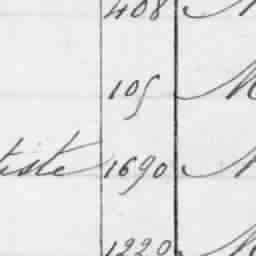 408
105 M
tiste 1690
1220